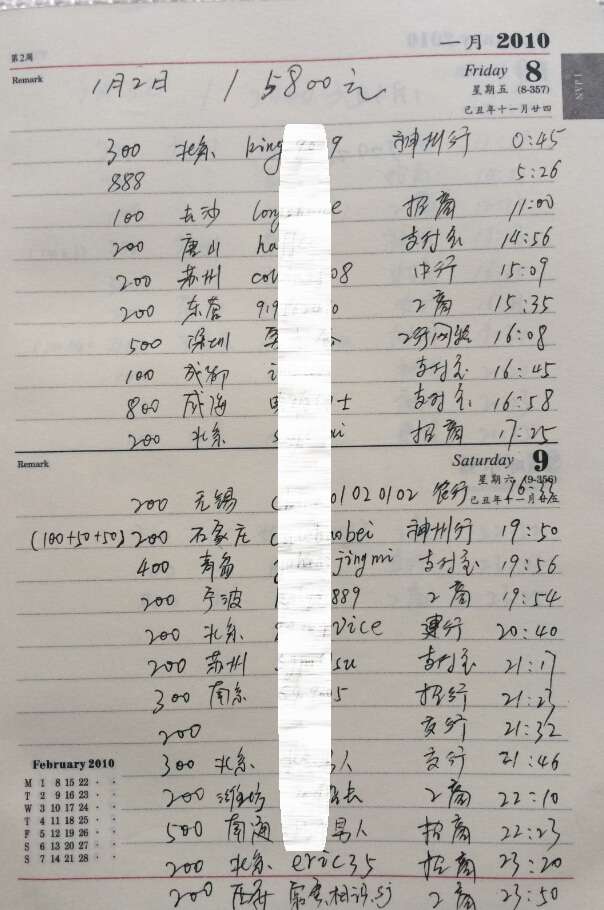 第2周
一月 2010
Remark
Friday 8
星期五 (8-357)
己丑年十一月廿四
1 JAN
1月2日 15800元
300 北京 king 9 神州行 0:45
888 5:26
100 长沙 long e 招商 11:00
200 唐山 ha 支付宝 14:56
200 苏州 co 08 中行 15:09
200 东营 919 0 工商 15:35
500 深圳 工行网银 16:08
100 成都 支付宝 16:45
800 威海 士 支付宝 16:58
200 北京 s i 招商 17:25
Remark
Saturday 9
星期六 (9-356)
己丑年十一月廿五
200 无锡 01020102 农行
(100+50+50) 200 石家庄 bei 神州行 19:50
400 青岛 jingmi 支付宝 19:56
200 宁波 889 工商 19:54
200 北京 vice 建行 20:40
200 苏州 su 支付宝 21:17
300 南京 5 招行 21:23
200 交行 21:32
300 北京 人 交行 21:46
200 潍坊 工商 22:10
500 南通 男人 招商 22:23
200 北京 eric35 招商 23:20
200 工商 23:50
February 2010
M 1 8 15 22 · ·
T 2 9 16 23 · ·
W 3 10 17 24 · ·
T 4 11 18 25 · ·
F 5 12 19 26 · ·
S 6 13 20 27 · ·
S 7 14 21 28 · ·